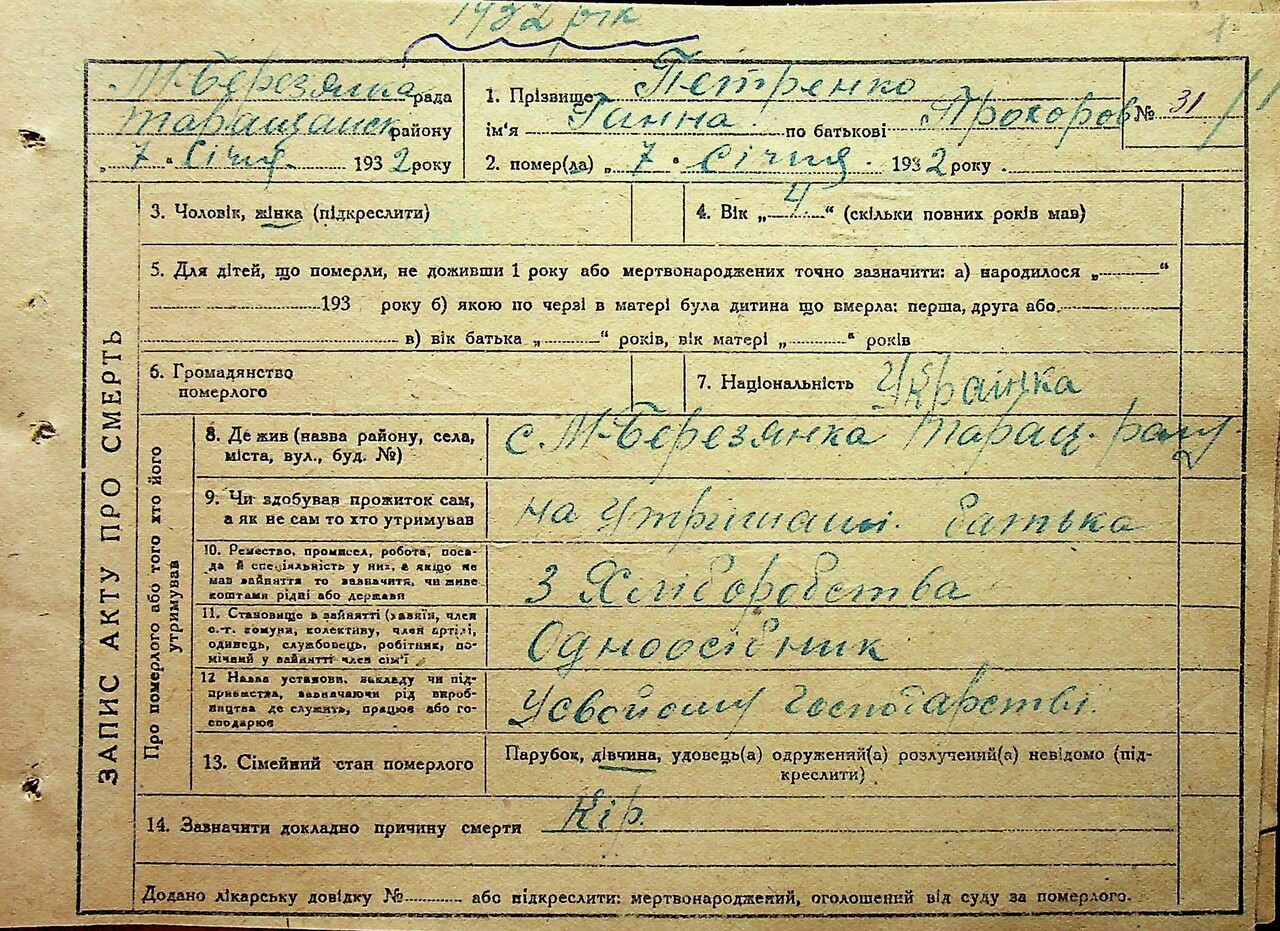 1932 рік
М-Березянка рада
Таращанськ району
„ 7 “ Січня 1932 року
1. Прізвище Петренко
ім'я Ганна по батькові Прокоров
№ 31
2. помер(ла) „ 7 “ Січня 1932 року
ЗАПИС АКТУ ПРО СМЕРТЬ
3. Чоловік, жінка (підкреслити)
4. Вік „ 4 “ (скільки повних років мав)
5. Для дітей, що померли, не доживши 1 року або мертвонароджених точно зазначити: а) народилося „ “
193 року б) якою по черзі в матері була дитина що вмерла: перша, друга або
в) вік батька „ “ років, вік матері „ “ років
6. Громадянство
померлого
7. Національність Українка
Про померлого або того хто його
утримував
8. Де жив (назва району, села,
міста, вул., буд. №)
с. М-Березянка Таращ. раду
9. Чи здобував прожиток сам,
а як не сам то хто утримував
на утриманні батька
10. Ремество, промисел, робота, поса-
да й спеціяльність у них, а якщо не
мав зайняття то зазначити, чи живе
коштами рідні або держави
З Хліборобства
11. Становище в зайнятті (хазяїн, член
с.-г. комуни, колективу, член артілі,
одинець, службовець, робітник, по-
мічний у зайнятті член сім'ї
Одноосібник
12 Назва установи, викладу чи під-
приємства, зазначаючи рід вироб-
ництва де служить, працює або го-
сподарює
У свойому господарстві.
13. Сімейний стан померлого
Парубок, дівчина, удовець(а) одружений(а) розлучений(а) невідомо (під-
креслити)
14. Зазначити докладно причину смерти Кір.
Додано лікарську довідку № або підкреслити: мертвонароджений, оголошений від суду за померлого.